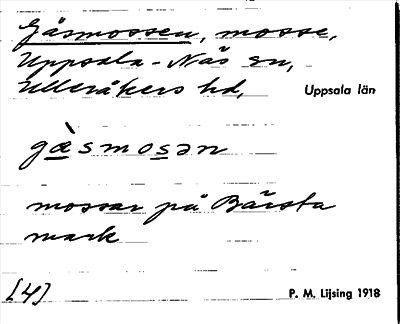 Gåsmossen, mosse,
Uppsala-Näs sn,
Ulleråkers hd, Uppsala län
gåsmosən
mossar på Bärsta
mark
[4] P. M. Lijsing 1918